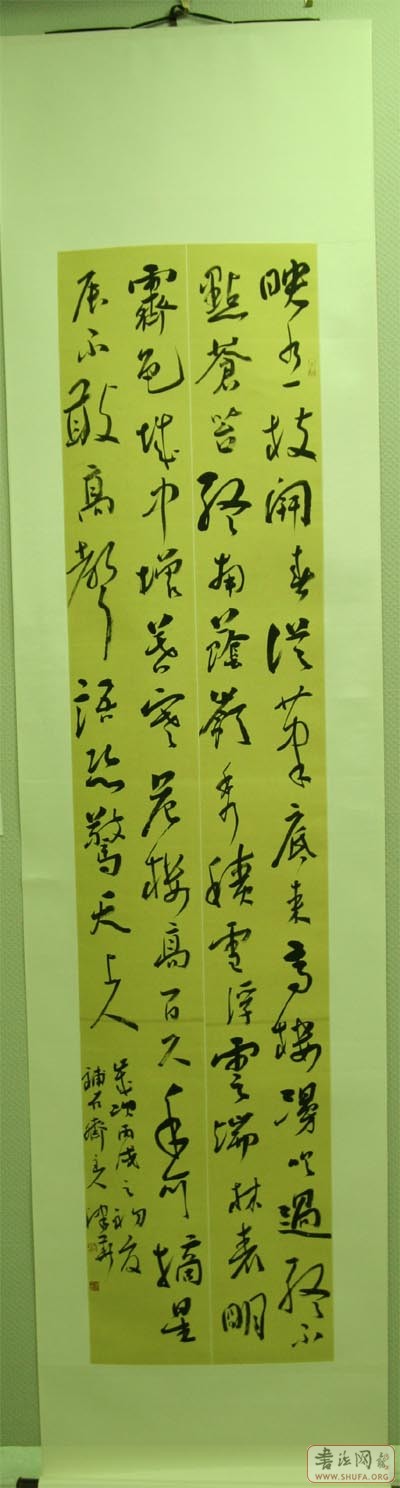 映水一枝開春從筆底来高樓漫吹過終不
點蒼苔終南蔭嶺秀積雪浮雲端林表明
霽色城中增暮寒危樓高百尺手可摘星
辰不敢高聲語恐驚天上人
歲次丙戌之初夏
石齋主人
書法网
WWW.SHUFA.ORG